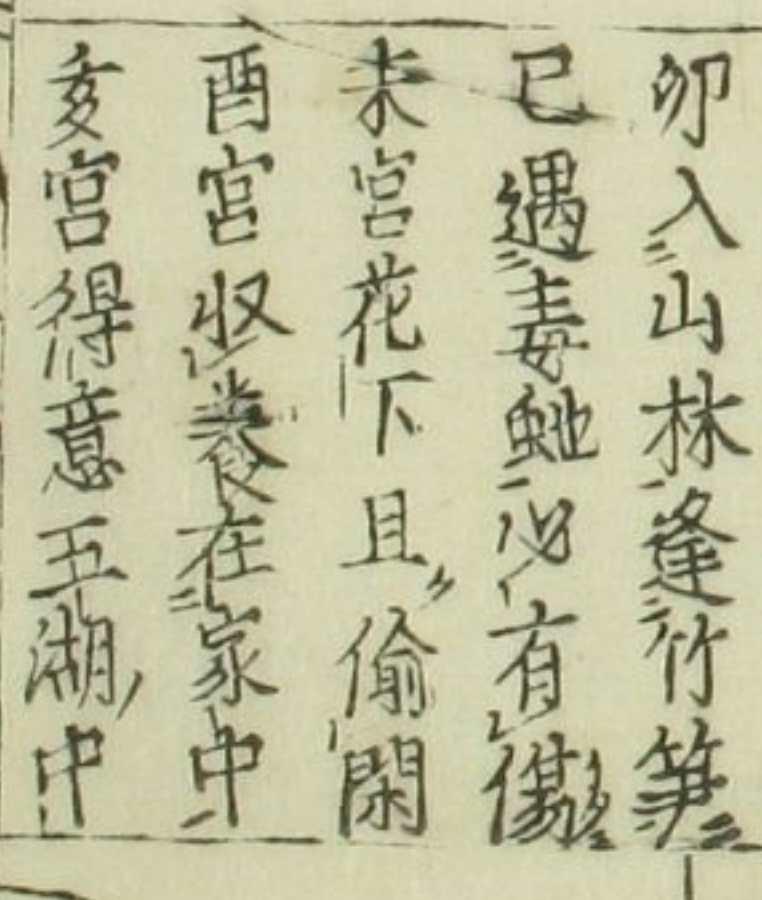 卯入山林逢竹笋
巳遇毒虵必有傷
未宮花下且偷閑
酉宮収養在家中
亥宮得意五湖中